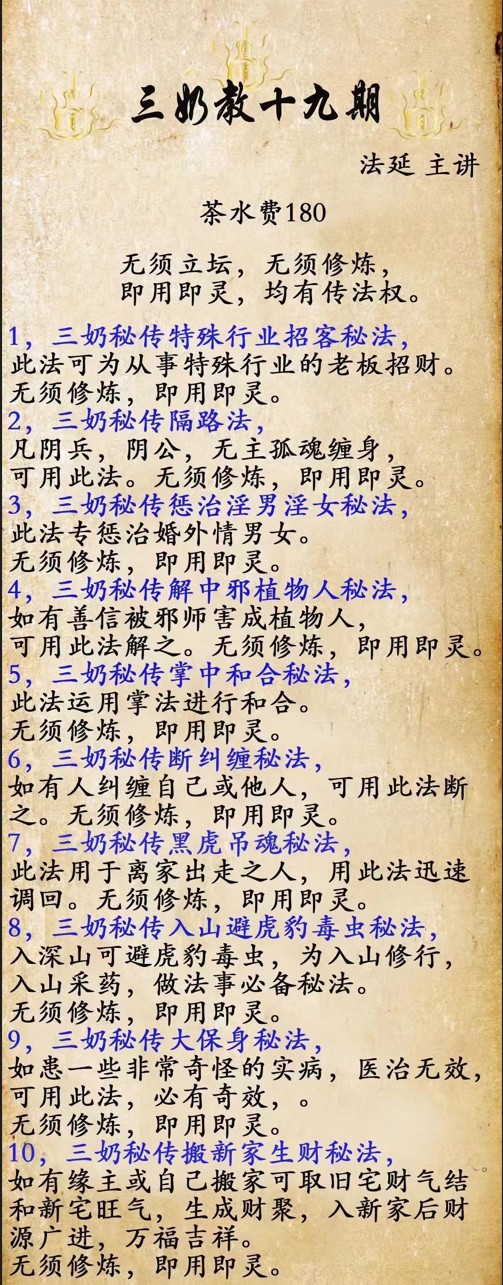 三奶教十九期
法延 主讲
茶水费180
无须立坛，无须修炼，
即用即灵，均有传法权。
1，三奶秘传特殊行业招客秘法，
此法可为从事特殊行业的老板招财。
无须修炼，即用即灵。
2，三奶秘传隔路法，
凡阴兵，阴公，无主孤魂缠身，
可用此法。无须修炼，即用即灵。
3，三奶秘传惩治淫男淫女秘法，
此法专惩治婚外情男女。
无须修炼，即用即灵。
4，三奶秘传解中邪植物人秘法，
如有善信被邪师害成植物人，
可用此法解之。无须修炼，即用即灵。
5，三奶秘传掌中和合秘法，
此法运用掌法进行和合。
无须修炼，即用即灵。
6，三奶秘传断纠缠秘法，
如有人纠缠自己或他人，可用此法断
之。无须修炼，即用即灵。
7，三奶秘传黑虎吊魂秘法，
此法用于离家出走之人，用此法迅速
调回。无须修炼，即用即灵。
8，三奶秘传入山避虎豹毒虫秘法，
入深山可避虎豹毒虫，为入山修行，
入山采药，做法事必备秘法。
无须修炼，即用即灵。
9，三奶秘传大保身秘法，
如患一些非常奇怪的实病，医治无效，
可用此法，必有奇效，。
无须修炼，即用即灵。
10，三奶秘传搬新家生财秘法，
如有缘主或自己搬家可取旧宅财气结
和新宅旺气，生成财聚，入新家后财
源广进，万福吉祥。
无须修炼，即用即灵。